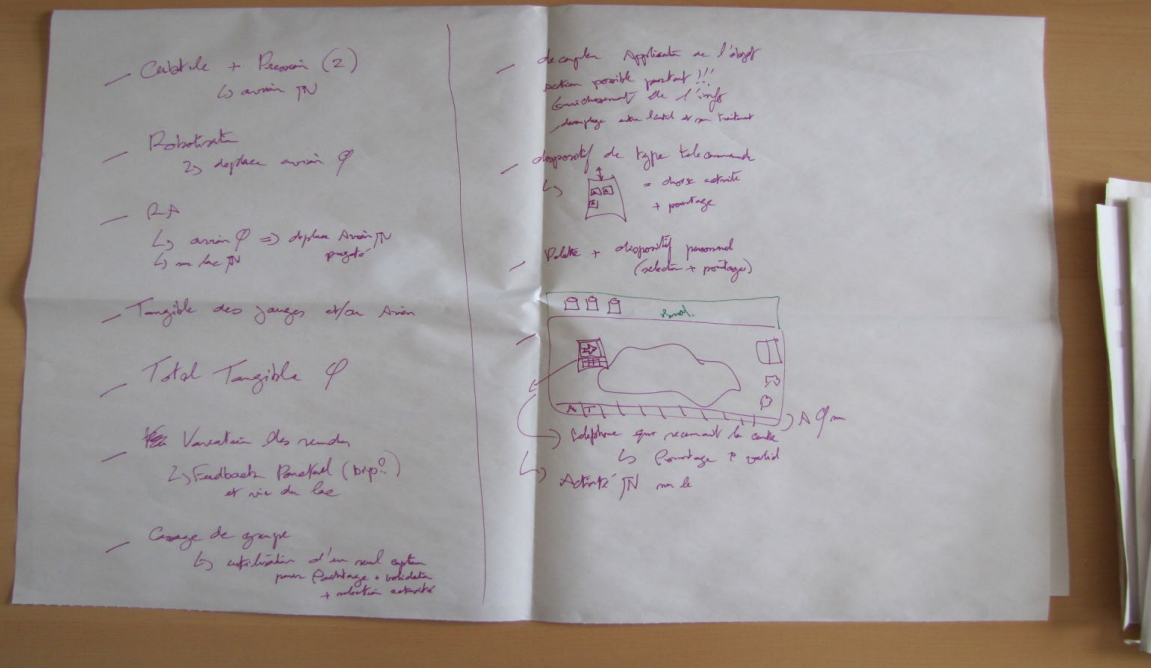 + Pression (2)
↳ avion
Robotisation
↳ deplace avion φ
RA
↳ avion φ => deplace Avion
projeté
↳ sur lac
Tangible des jauges et/ou Avion
Total Tangible φ
Variation des rendus
↳ Feedback Ponctuel (bip?)
et vie du lac
de groupe
↳ utilisation d'un seul
pour Pointage + validation
+ selection activité
decoupler Application de l'objet
action possible partout !!!
Enrichissement de l'info
decouplage entre l'outil et son traitement
dispositif de type telecommande
↳ = choix activité
+ pointage
Palette + dispositif personnel
(selection + pointage)
A T
telephone qui reconnait la carte
↳ Pointage + valid
↳ Activité sur le